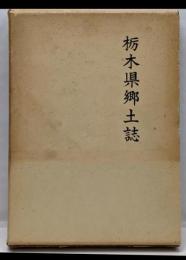 栃木県郷土誌